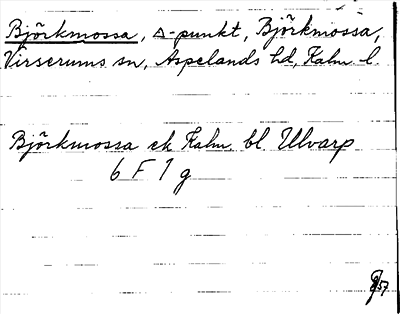 Björkmossa, △-punkt, Björkmossa,
Virserums sn, Aspelands hd, Kalm. l.
Björkmossa ek Kalm. bl. Ulvarp
6 F 1 g
57